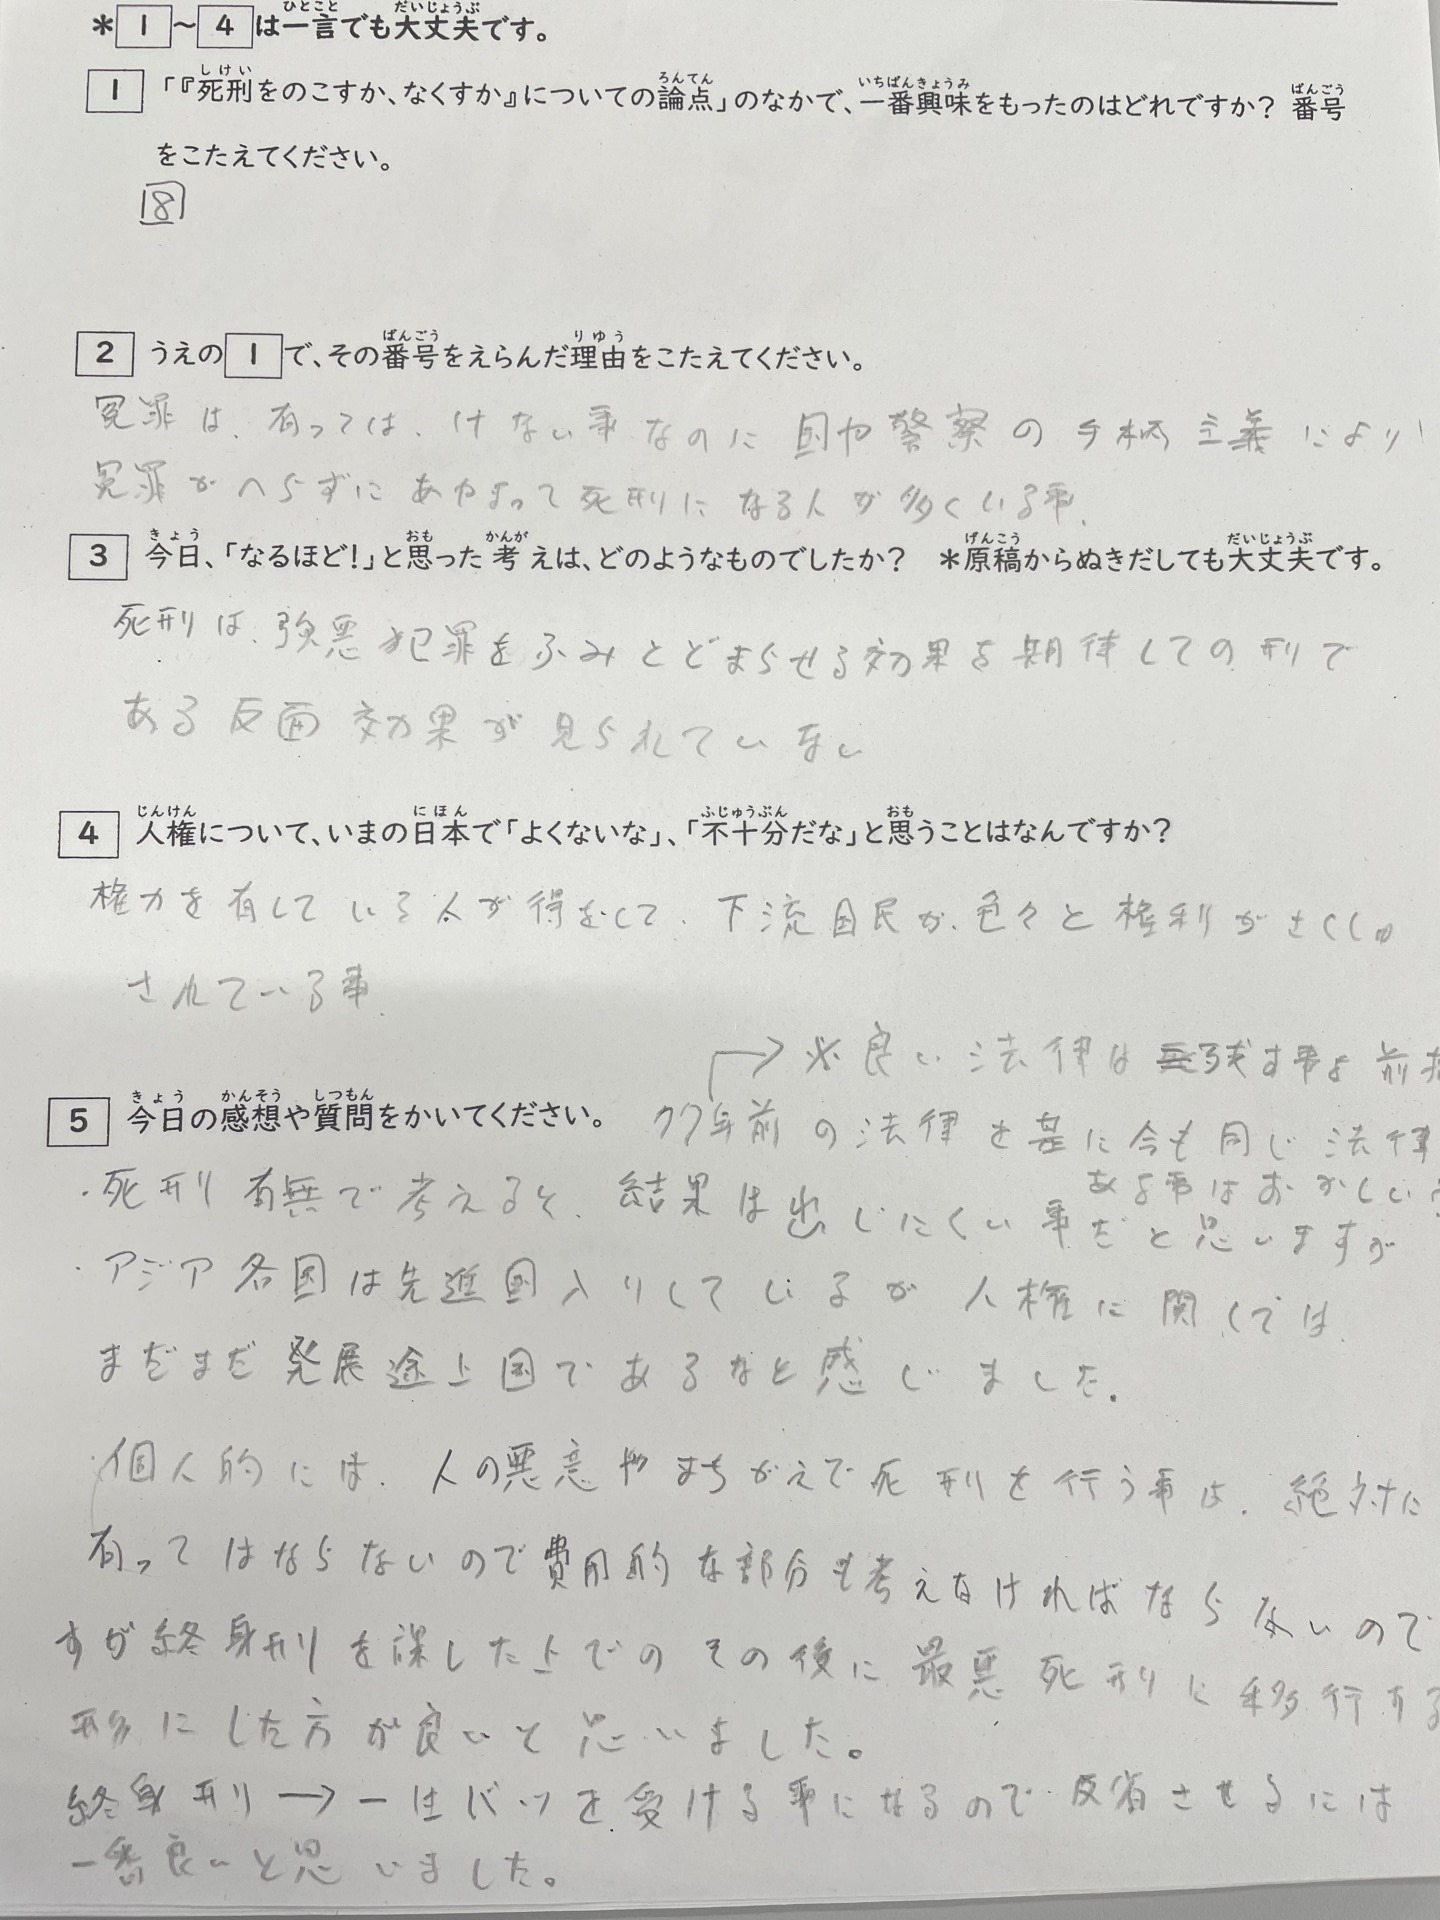 ＊1～4は一言でも大丈夫です。
1 「『死刑をのこすか、なくすか』についての論点」のなかで、一番興味をもったのはどれですか？ 番号
をこたえてください。
8
2 うえの1で、その番号をえらんだ理由をこたえてください。
冤罪は、有っては、けない事なのに国や警察の手柄主義により
冤罪がへらずにあやまって死刑になる人が多くいる事、
3 今日、「なるほど！」と思った考えは、どのようなものでしたか？ ＊原稿からぬきだしても大丈夫です。
死刑は、強悪犯罪をふみとどまらせる効果を期待しての刑で
ある反面効果が見られていない
4 人権について、いまの日本で「よくないな」、「不十分だな」と思うことはなんですか？
権力を有している人が得をして、下流国民が、色々と権利がさくしゅ
されている事、
→ ※良い法律は残す事を前
5 今日の感想や質問をかいてください。 77年前の法律を基に今も同じ法律
ある事はおかしい
・死刑有無で考えると、結果は出しにくい事だと思いますが
・アジア各国は先進国入りしているが人権に関しては、
まだまだ発展途上国であるなと感じました。
・個人的には、人の悪意やまちがえで死刑を行う事は、絶対に
有ってはならないので費用的な部分も考えなければならないので
すが終身刑を課した上でのその後に最悪死刑に移行する
形にした方が良いと思いました。
終身刑→一生バツを受ける事になるので反省させるには
一番良いと思いました。